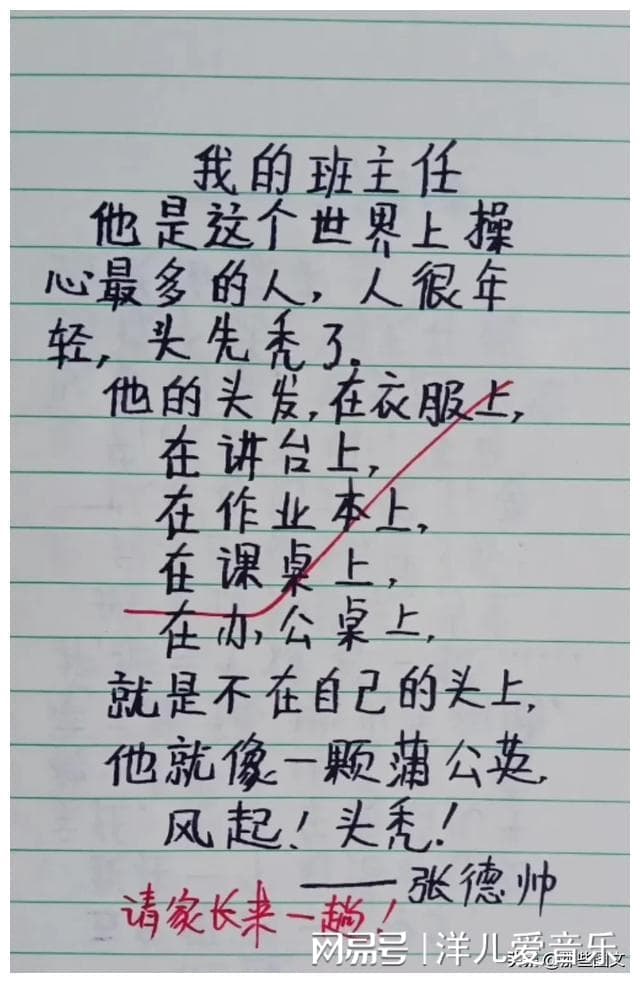 我的班主任
他是这个世界上操
心最多的人，人很年
轻，头先秃了。
他的头发，在衣服上，
在讲台上，
在作业本上，
在课桌上，
在办公桌上，
就是不在自己的头上，
他就像一颗蒲公英，
风起！头秃！
——张德帅
请家长来一趟！
网易号 | 洋儿爱音乐
头条 @那些图文